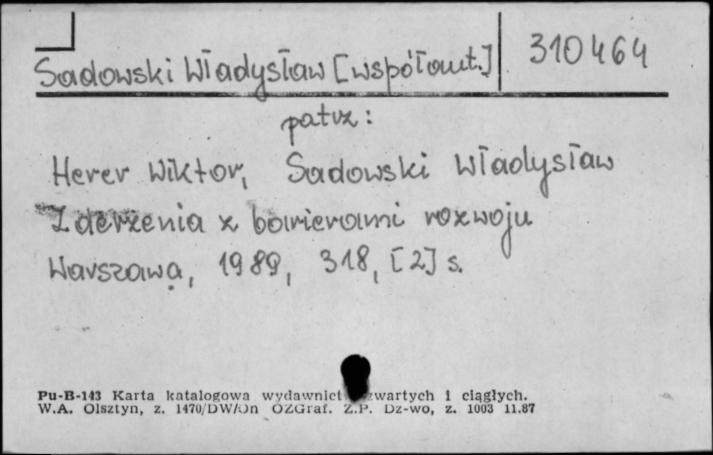 Sadowski Władysław [współaut.] 310464
patrz:
Herer Wiktor, Sadowski Władysław
Zderzenia z barierami rozwoju
Warszawa, 1989, 318, [2] s.
Pu-B-143 Karta katalogowa wydawnict zwartych i ciągłych.
W.A. Olsztyn, z. 1470/DW/On OZGraf. Z.P. Dz-wo, z. 1003 11.87